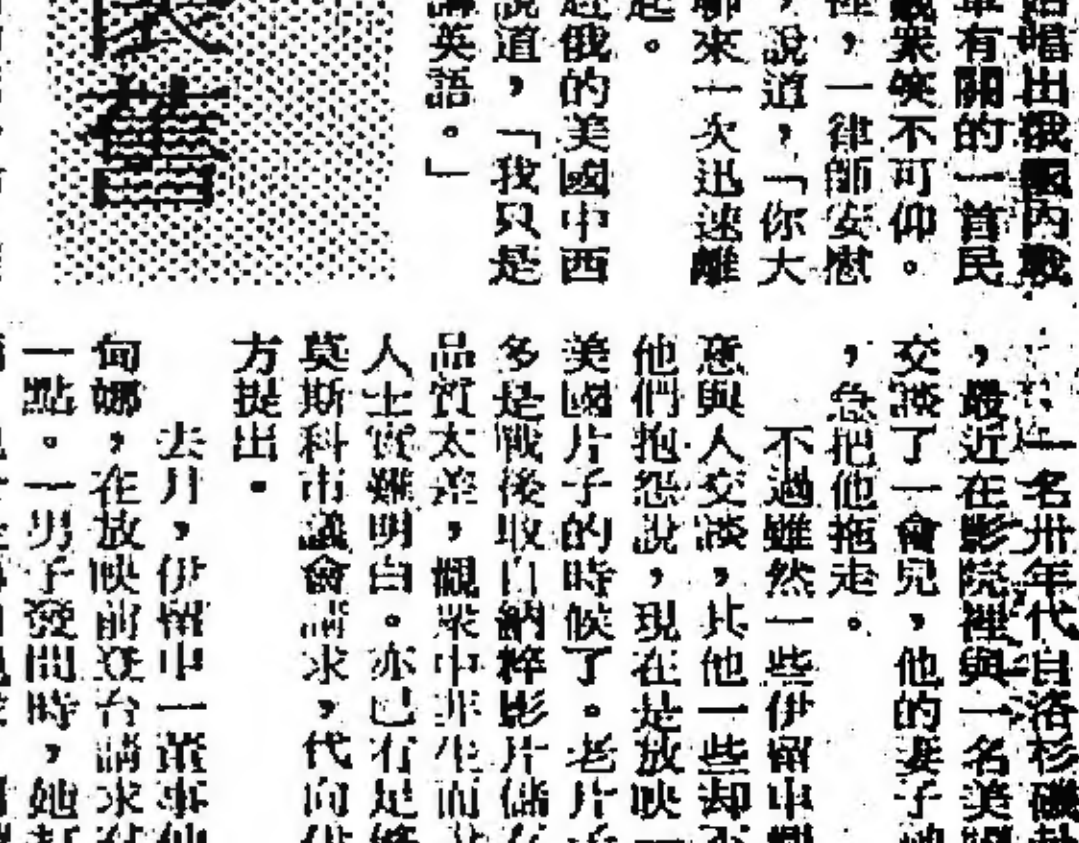 唱出俄國內戰
有關的一首民
衆笑不可仰。
，一律師安慰
，說道，「你大
來一次迅速離
起。
俄的美國中西
說道，「我只是
講英語。」
舊
一名卅年代自洛杉磯
，最近在影院裡與一名美國
交談了一會兒，他的妻子
，急把他拖走。
不過雖然一些伊留申
意與人交談，其他一些却不
他們抱怨說，現在是放映一
美國片子的時候了。老片子
多是戰後取自納粹影片儲
品質太差，觀衆中非生而
人士實難明白。亦已有是
莫斯科市議會請求，代向
方提出。
去月，伊留申一董事
甸娜，在放映前登台請求
一點。一男子發問時，她